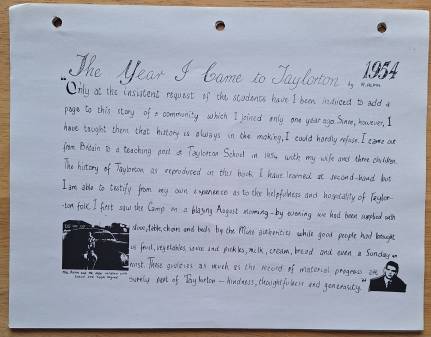 The Year I Came to Taylorton
by
1954
"Only at the insistent request of the students have I been induced to add a
page to this story of a community which I joined only one year ago. Since, however, I
have taught them that history is always in the making, I could hardly refuse. I came out
from Britain to a teaching post at Taylorton School in 1954 with my wife and three children.
The history of Taylorton as reproduced in this book I have learned at second-hand but
I am able to testify from my own experience as to the helpfulness and hospitality of Taylor-
ton folk. I first saw the Camp on a blazing August morning - by evening we had been supplied with
stove, table, chairs and beds by the Mine authorities while good people had brought
us fruit, vegetables, juice and pickles, milk, cream, bread and even a Sunday
roast. These qualities as much as the record of material progress are
surely part of Taylorton - kindness, thoughtfulness and generosity."